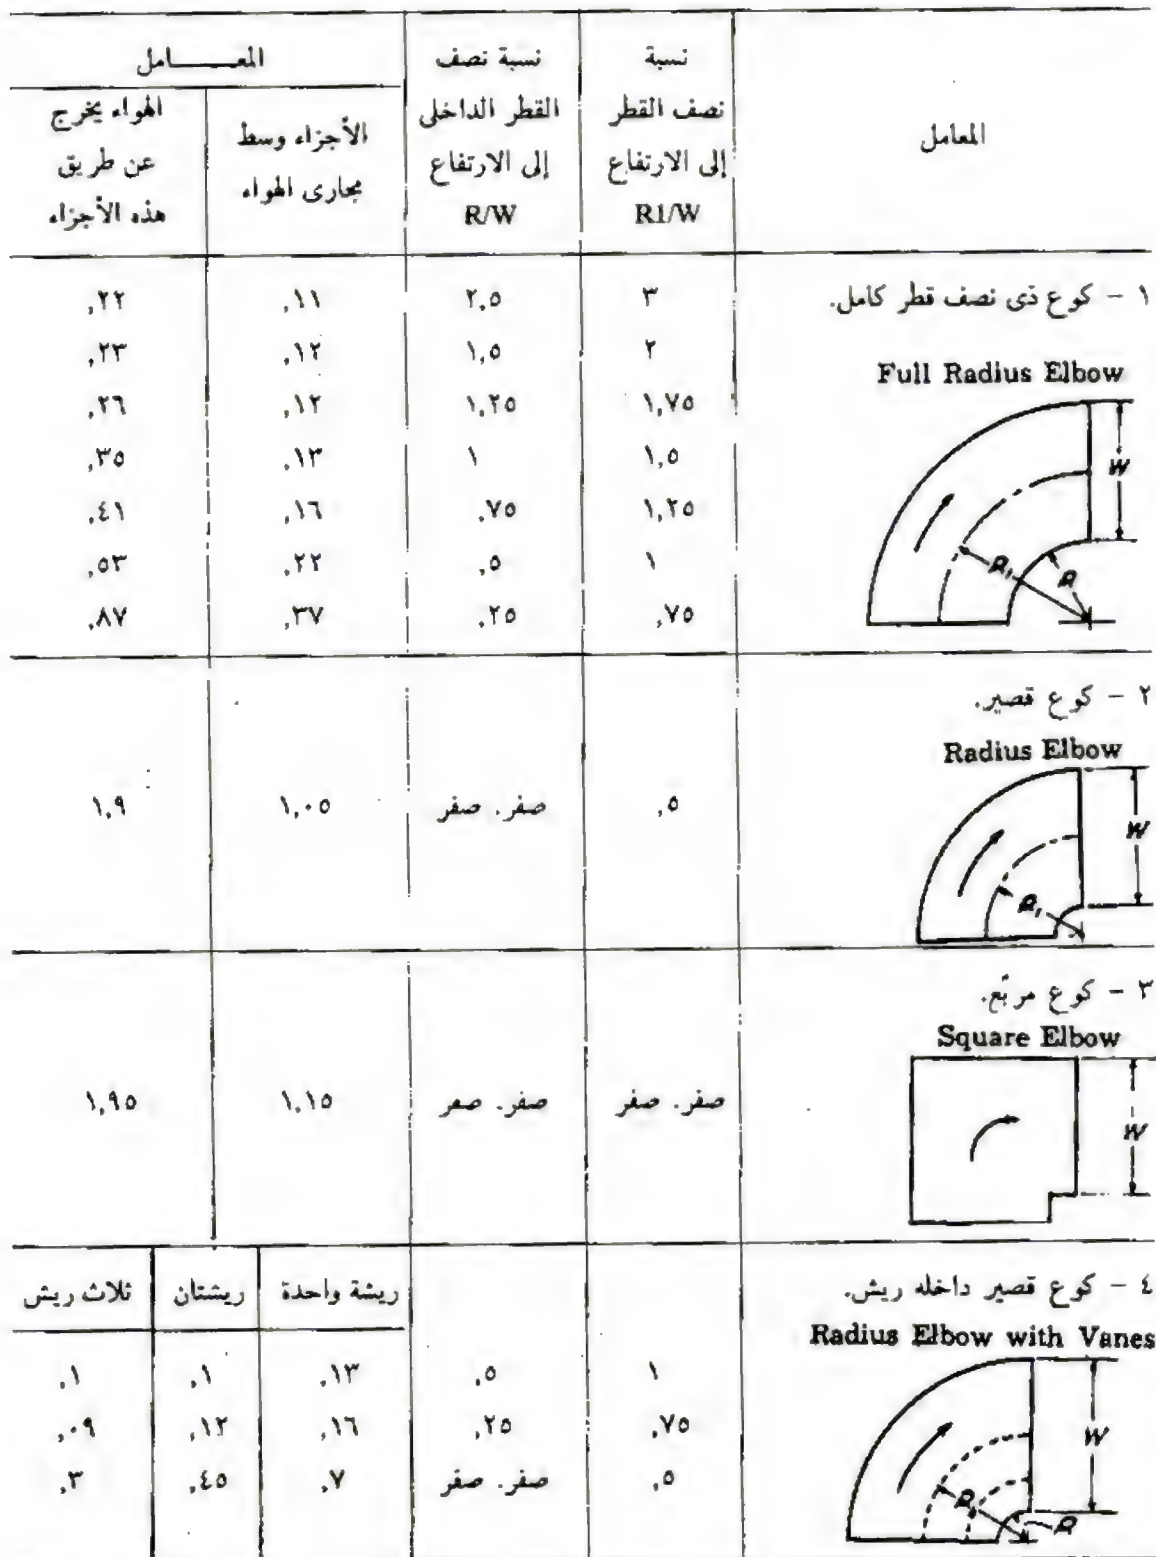 المعامل
نسبة
نصف القطر
إلى الارتفاع
R1/W
نسبة نصف
القطر الداخلى
إلى الارتفاع
R/W
المعـــــامل
الأجزاء وسط
مجارى الهواء
الهواء يخرج
عن طريق
هذه الأجزاء
١ - كوع ذى نصف قطر كامل.
Full Radius Elbow
W
R₁
R
٣ ٢,٥ ,١١ ,٢٢
٢ ١,٥ ,١٢ ,٢٣
١,٧٥ ١,٢٥ ,١٢ ,٢٦
١,٥ ١ ,١٣ ,٣٥
١,٢٥ ,٧٥ ,١٦ ,٤١
١ ,٥ ,٢٢ ,٥٣
,٧٥ ,٢٥ ,٣٧ ,٨٧
٢ - كوع قصير.
Radius Elbow
W
R₁
,٥ صفر. صفر ١,٠٥ ١,٩
٣ - كوع مربّع.
Square Elbow
W
صفر. صفر صفر. صفر ١,١٥ ١,٩٥
٤ - كوع قصير داخله ريش.
Radius Elbow with Vanes
W
R
R
ريشة واحدة ريشتان ثلاث ريش
١ ,٥ ,١٣ ,١ ,١
,٧٥ ,٢٥ ,١٦ ,١٢ ,٠٩
,٥ صفر. صفر ,٧ ,٤٥ ,٣